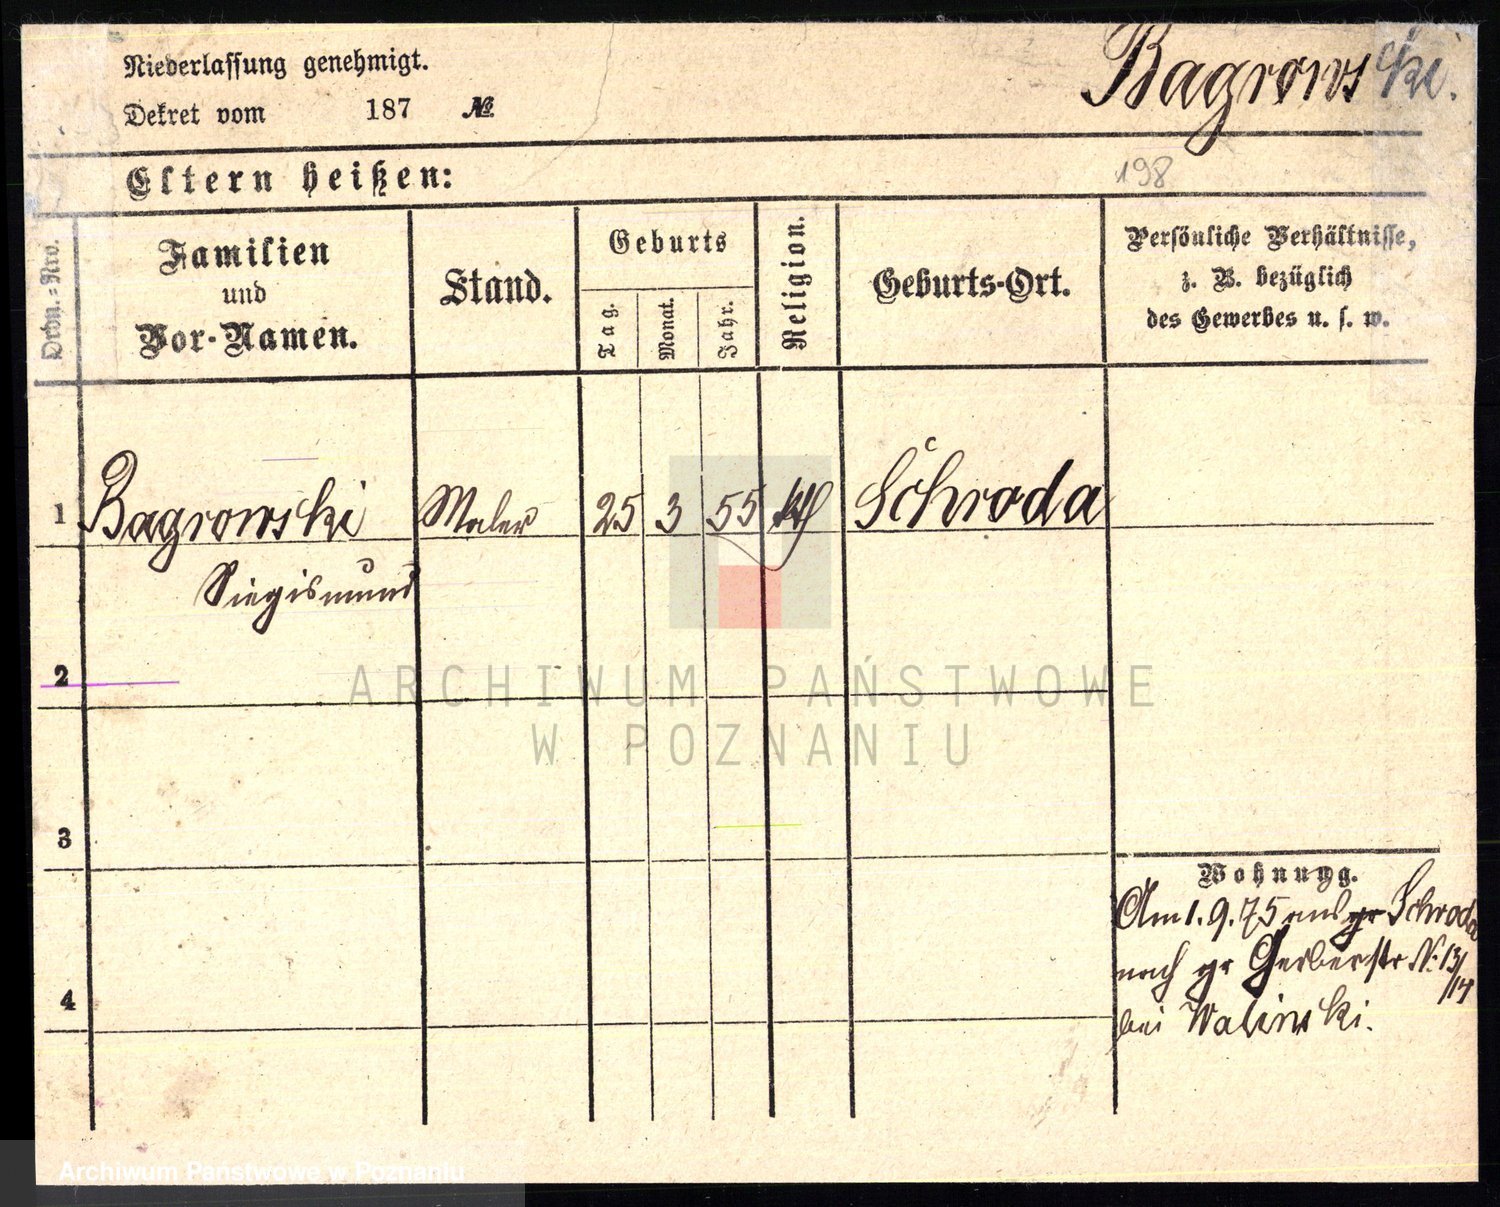 Niederlassung genehmigt.
Bagrowski.
Dekret vom 187 №
Eltern heißen:
198
Ordn.-Nro.
Familien
und
Vor-Namen.
Stand.
Geburts
Tag.
Monat.
Jahr.
Religion.
Geburts-Ort.
Persönliche Verhältnisse,
z. B. bezüglich
des Gewerbes u. s. w.
1 Bagrowski Maler 25 3 55 kth Schroda
Siegismund
2
ARCHIWUM PAŃSTWOWE
W POZNANIU
3
Wohnung.
Am 1.9.75 aus Schroda
nach gr Gerberstr N. 13/
/14
bei Walinski.
4
Archiwum Państwowe w Poznaniu